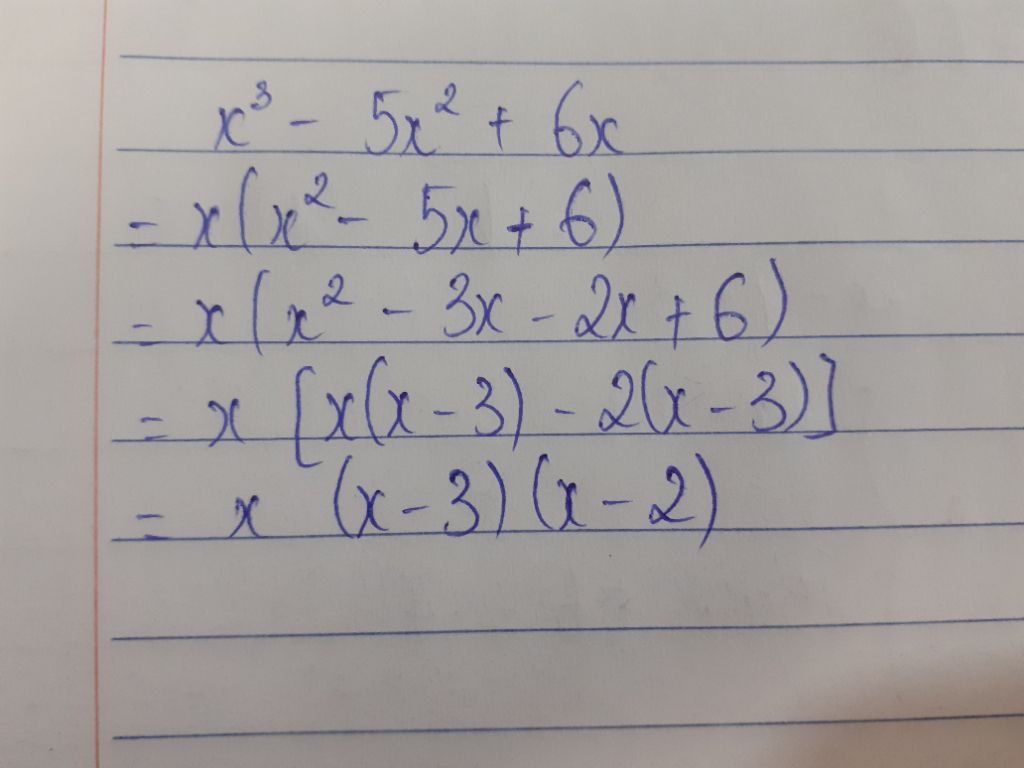 x³ - 5x² + 6x
= x(x² - 5x + 6)
= x(x² - 3x - 2x + 6)
= x [x(x - 3) - 2(x - 3)]
= x (x - 3) (x - 2)